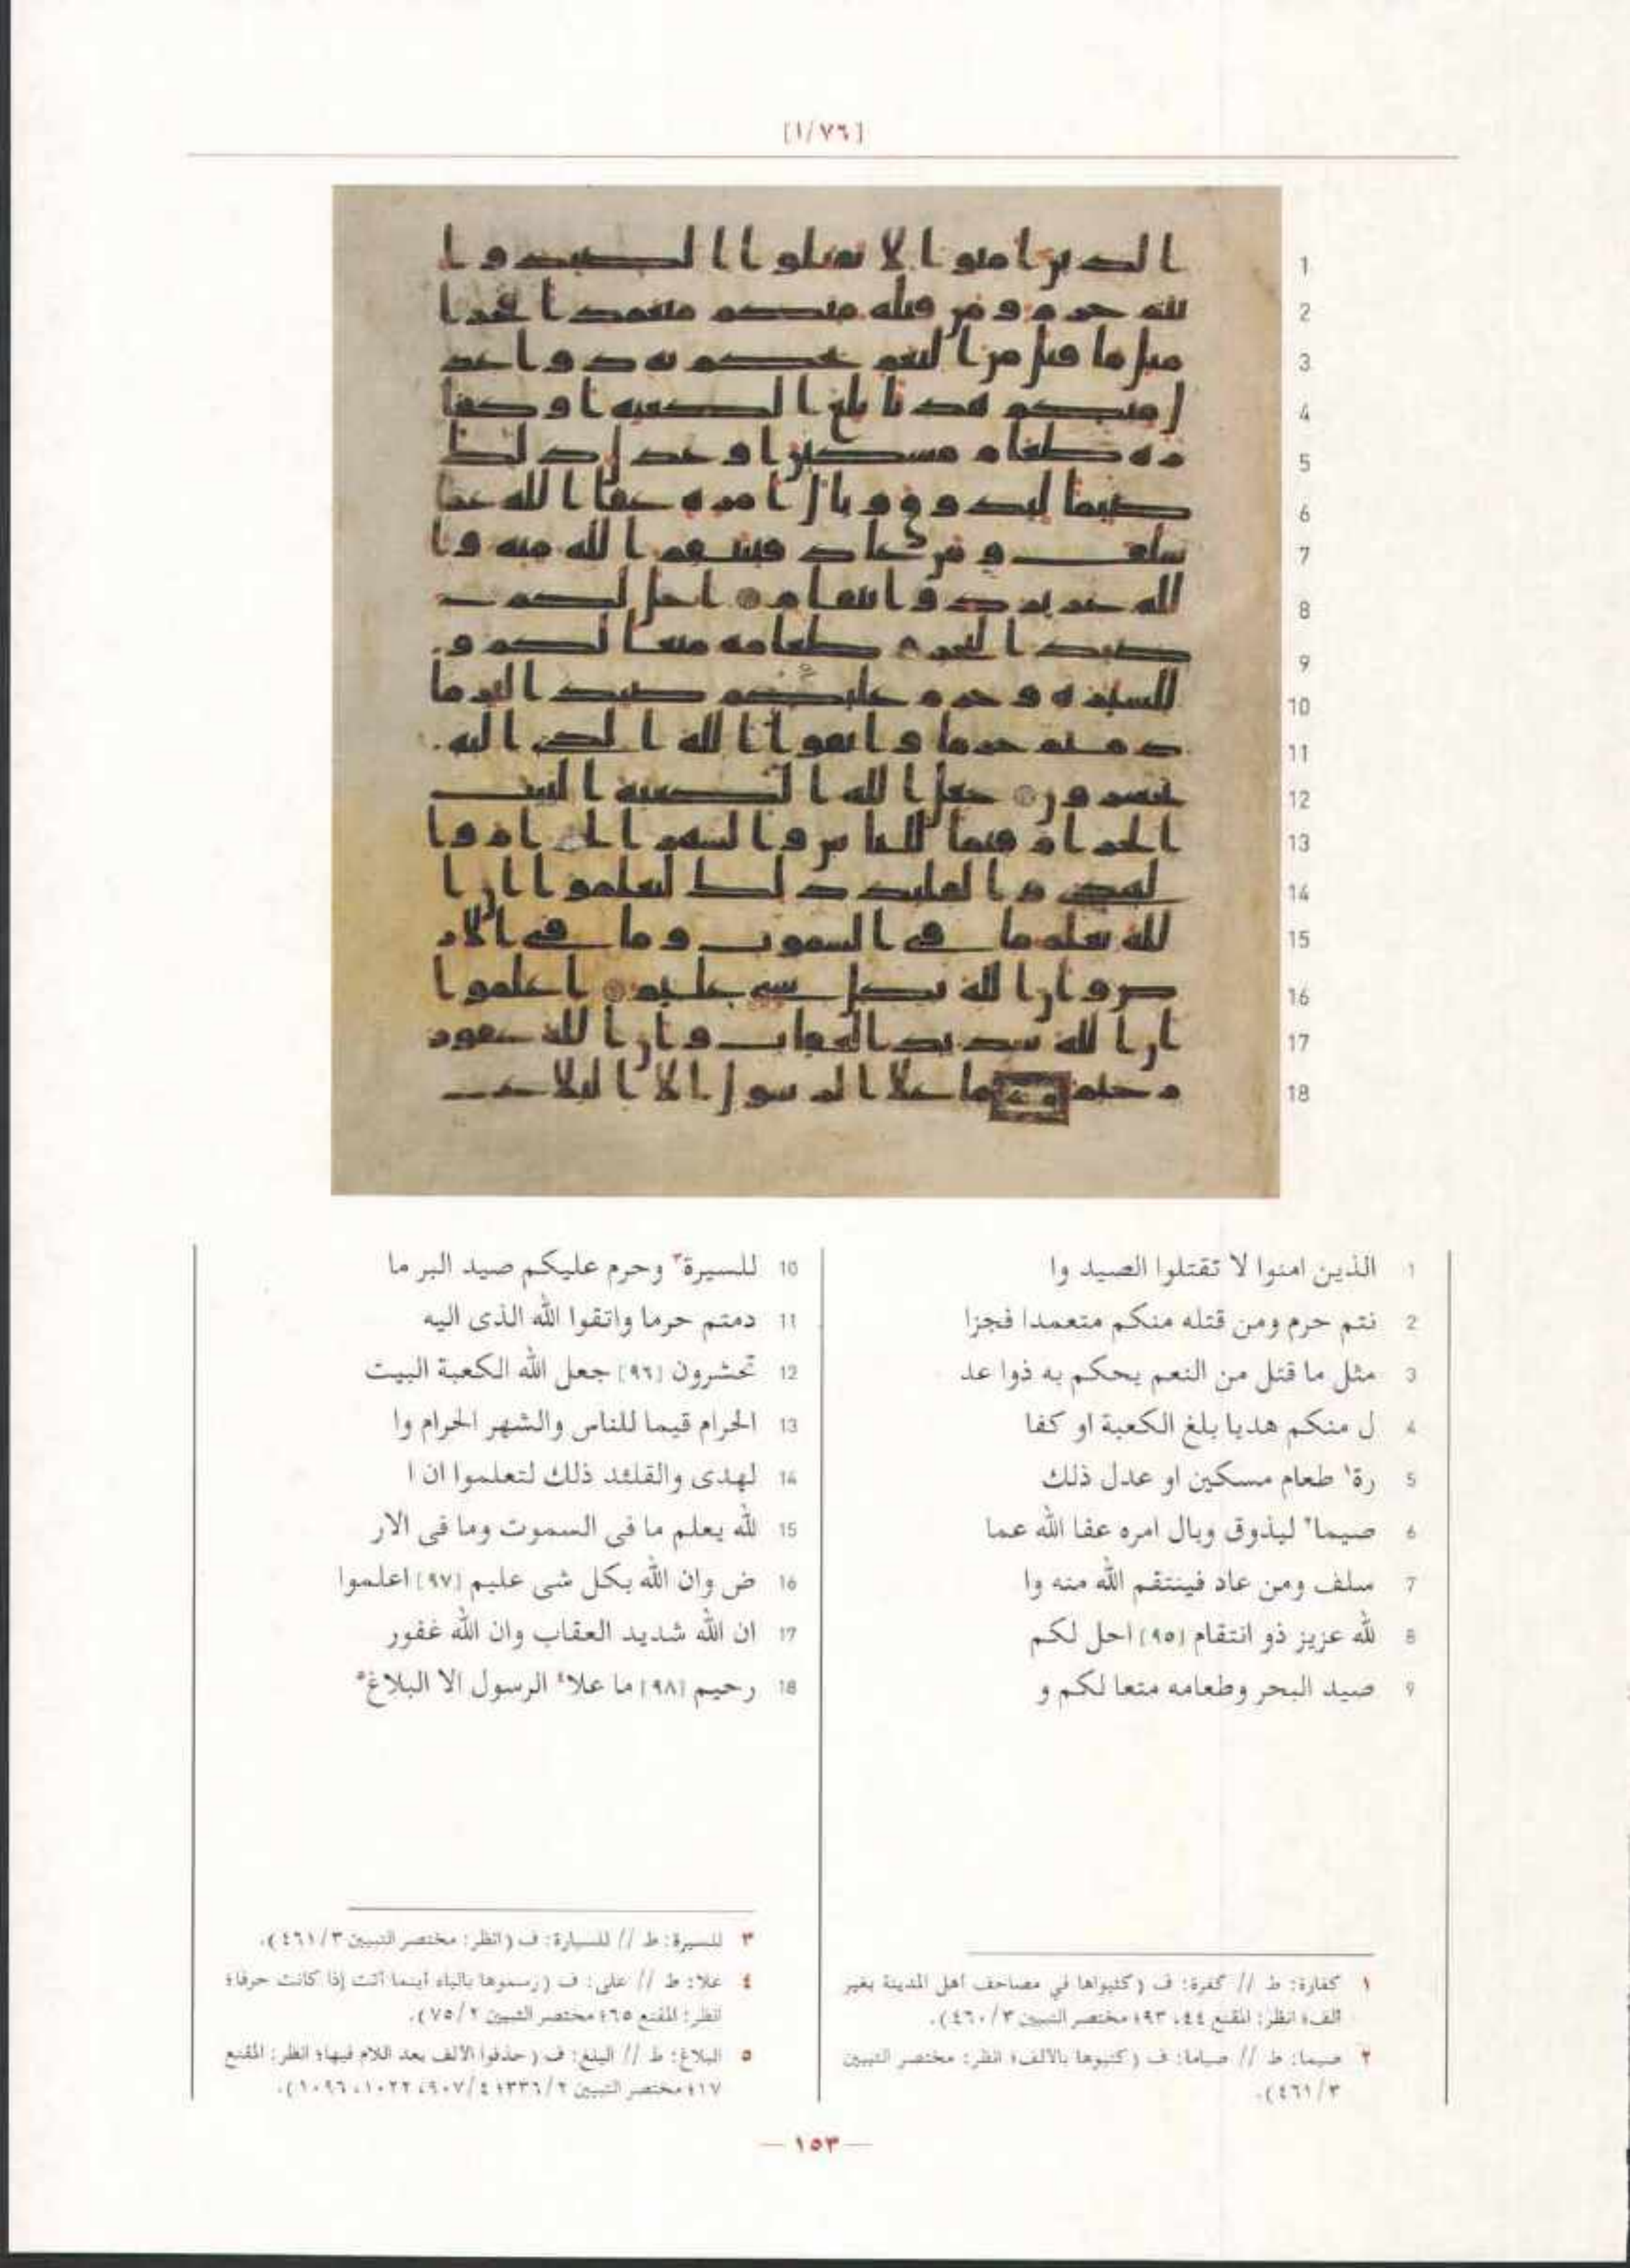 [١/٧٦]
1
2
3
4
5
6
7
8
9
10
11
12
13
14
15
16
17
18
1 الذين امنوا لا تقتلوا الصيد وا
2 نتم حرم ومن قتله منكم متعمدا فجزا
3 مثل ما قتل من النعم يحكم به ذوا عد
4 ل منكم هديا بلغ الكعبة او كفا
5 رة١ طعام مسكين او عدل ذلك
6 صيما٢ ليذوق وبال امره عفا الله عما
7 سلف ومن عاد فينتقم الله منه وا
8 لله عزيز ذو انتقام [٩٥] احل لكم
9 صيد البحر وطعامه متعا لكم و
10 للسيرة٣ وحرم عليكم صيد البر ما
11 دمتم حرما واتقوا الله الذى اليه
12 تحشرون [٩٦] جعل الله الكعبة البيت
13 الحرام قيما للناس والشهر الحرام وا
14 لهدى والقلئد ذلك لتعلموا ان ا
15 لله يعلم ما فى السموت وما فى الار
16 ض وان الله بكل شى عليم [٩٧] اعلموا
17 ان الله شديد العقاب وان الله غفور
18 رحيم [٩٨] ما علا٤ الرسول الا البلاغ٥
١ كفارة: ط // كفرة: ف (كتبواها في مصاحف أهل المدينة بغير
ألف؛ انظر: المقنع ٤٤، ٩٣؛ مختصر التبيين ٣/ ٤٦٠).
٢ صيما: ط // صياما: ف (كتبوها بالألف؛ انظر: مختصر التبيين
٣/ ٤٦١).
٣ للسيرة: ط // للسيارة: ف (انظر: مختصر التبيين ٣/ ٤٦١).
٤ علا: ط // على: ف (رسموها بالياء أينما أتت إذا كانت حرفا؛
انظر: المقنع ٦٥؛ مختصر التبيين ٢/ ٧٥).
٥ البلاغ: ط // البلغ: ف (حذفوا الألف بعد اللام فيها؛ انظر: المقنع
١٧؛ مختصر التبيين ٢/ ٣٣٦؛ ٤/ ٩٠٧، ١٠٢٢، ١٠٩٦).
— ١٥٣ —